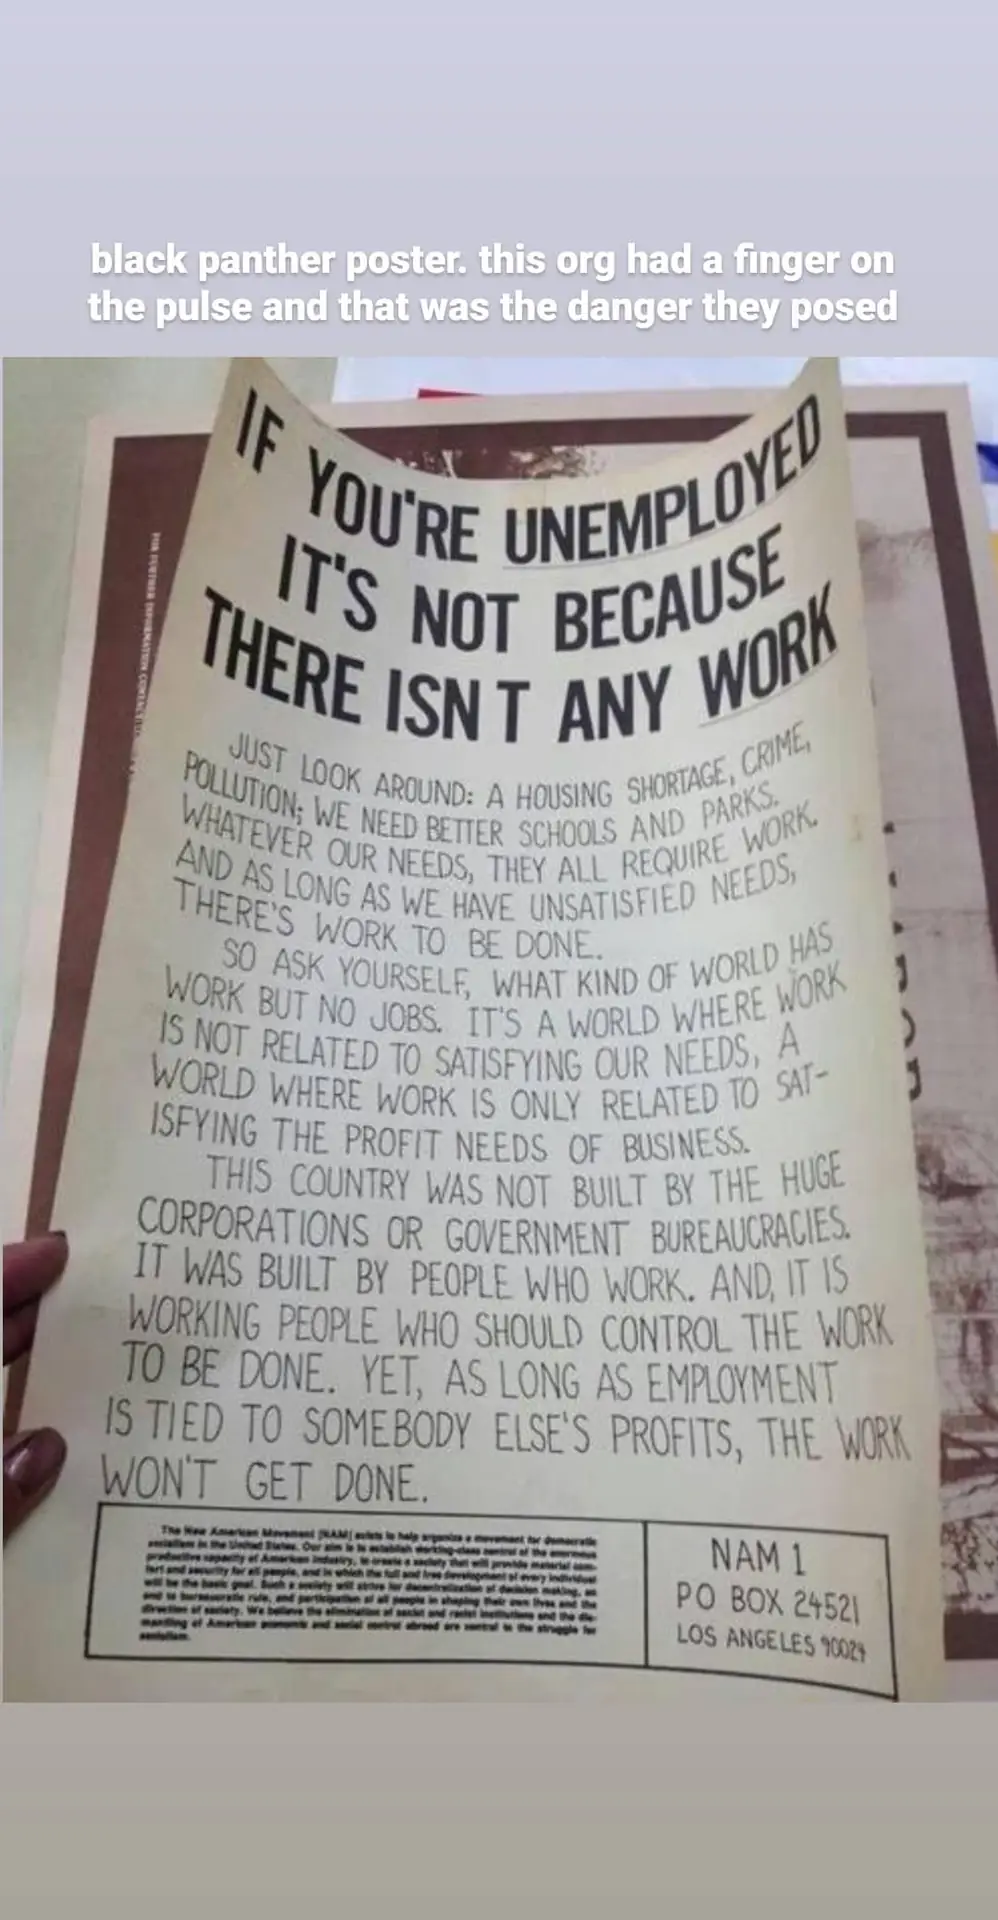 black panther poster. this org had a finger on
the pulse and that was the danger they posed
FOR FURTHER INFORMATION
IF YOU'RE UNEMPLOYED
IT'S NOT BECAUSE
THERE ISN T ANY WORK
JUST LOOK AROUND: A HOUSING SHORTAGE, CRIME,
POLLUTION; WE NEED BETTER SCHOOLS AND PARKS.
WHATEVER OUR NEEDS, THEY ALL REQUIRE WORK.
AND AS LONG AS WE HAVE UNSATISFIED NEEDS,
THERE'S WORK TO BE DONE.
SO ASK YOURSELF, WHAT KIND OF WORLD HAS
WORK BUT NO JOBS. IT'S A WORLD WHERE WORK
IS NOT RELATED TO SATISFYING OUR NEEDS, A
WORLD WHERE WORK IS ONLY RELATED TO SAT-
ISFYING THE PROFIT NEEDS OF BUSINESS.
THIS COUNTRY WAS NOT BUILT BY THE HUGE
CORPORATIONS OR GOVERNMENT BUREAUCRACIES.
IT WAS BUILT BY PEOPLE WHO WORK. AND, IT IS
WORKING PEOPLE WHO SHOULD CONTROL THE WORK
TO BE DONE. YET, AS LONG AS EMPLOYMENT
IS TIED TO SOMEBODY ELSE'S PROFITS, THE WORK
WON'T GET DONE.
The New American Movement [NAM] exists to help organize a movement for democratic
socialism in the United States. Our aim is to establish working-class control of the enormous
productive capacity of American industry, to create a society that will provide material com-
fort and security for all people, and in which the full and free development of every individual
will be the basic goal. Such a society will strive for decentralization of decision making, an
end to bureaucratic rule, and participation of all people in shaping their own lives and the
direction of society. We believe the elimination of sexist and racist institutions and the dis-
mantling of American economic and social control abroad are central to the struggle for
socialism.
NAM 1
PO BOX 24521
LOS ANGELES 90024